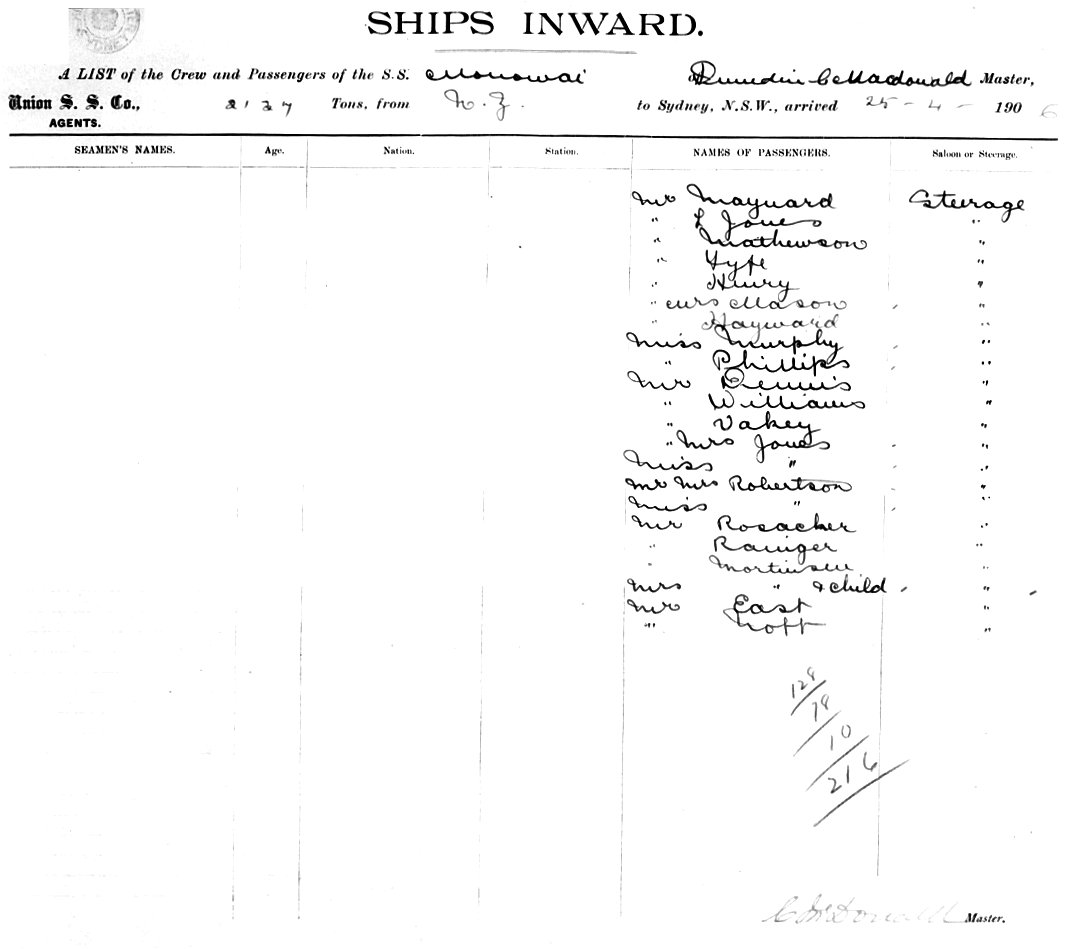 SHIPS INWARD.
A LIST of the Crew and Passengers of the S.S. Monowai of Dunedin C Macdonald Master,
Union S. S. Co., 2137 Tons, from N.Z. to Sydney, N.S.W., arrived 25 - 4 - 1906
AGENTS.
SEAMEN'S NAMES. Age. Nation. Station. NAMES OF PASSENGERS. Saloon or Steerage.
Mr Maynard Steerage
" L Jones "
" Mathewson "
" Fyfe "
" Henry "
" Mrs Mason "
" Hayward "
Miss Murphy "
" Phillips "
Mr Dennis "
" Williams "
" Vakey "
" Mrs Jones "
Miss " "
Mr Mrs Robertson "
Miss " "
Mr Rosacker "
" "
" Mortinsen "
Mrs " & child "
Mr East "
" Nott "
128
78
10
216
C McDonald Master.